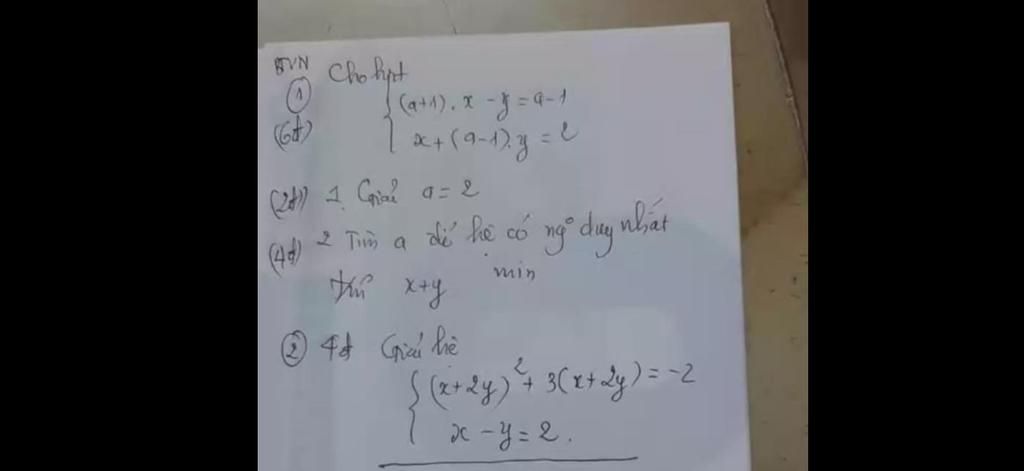 BTVN
① Cho hpt
(6đ)
(a+1).x - y = a-1
x + (a-1).y = 2
(2đ) 1. Giải a = 2
(4đ) 2 Tìm a để hệ có ngº duy nhất
x+y min
② 4đ Giải hệ
(x+2y)² + 3(x+2y) = -2
x - y = 2.